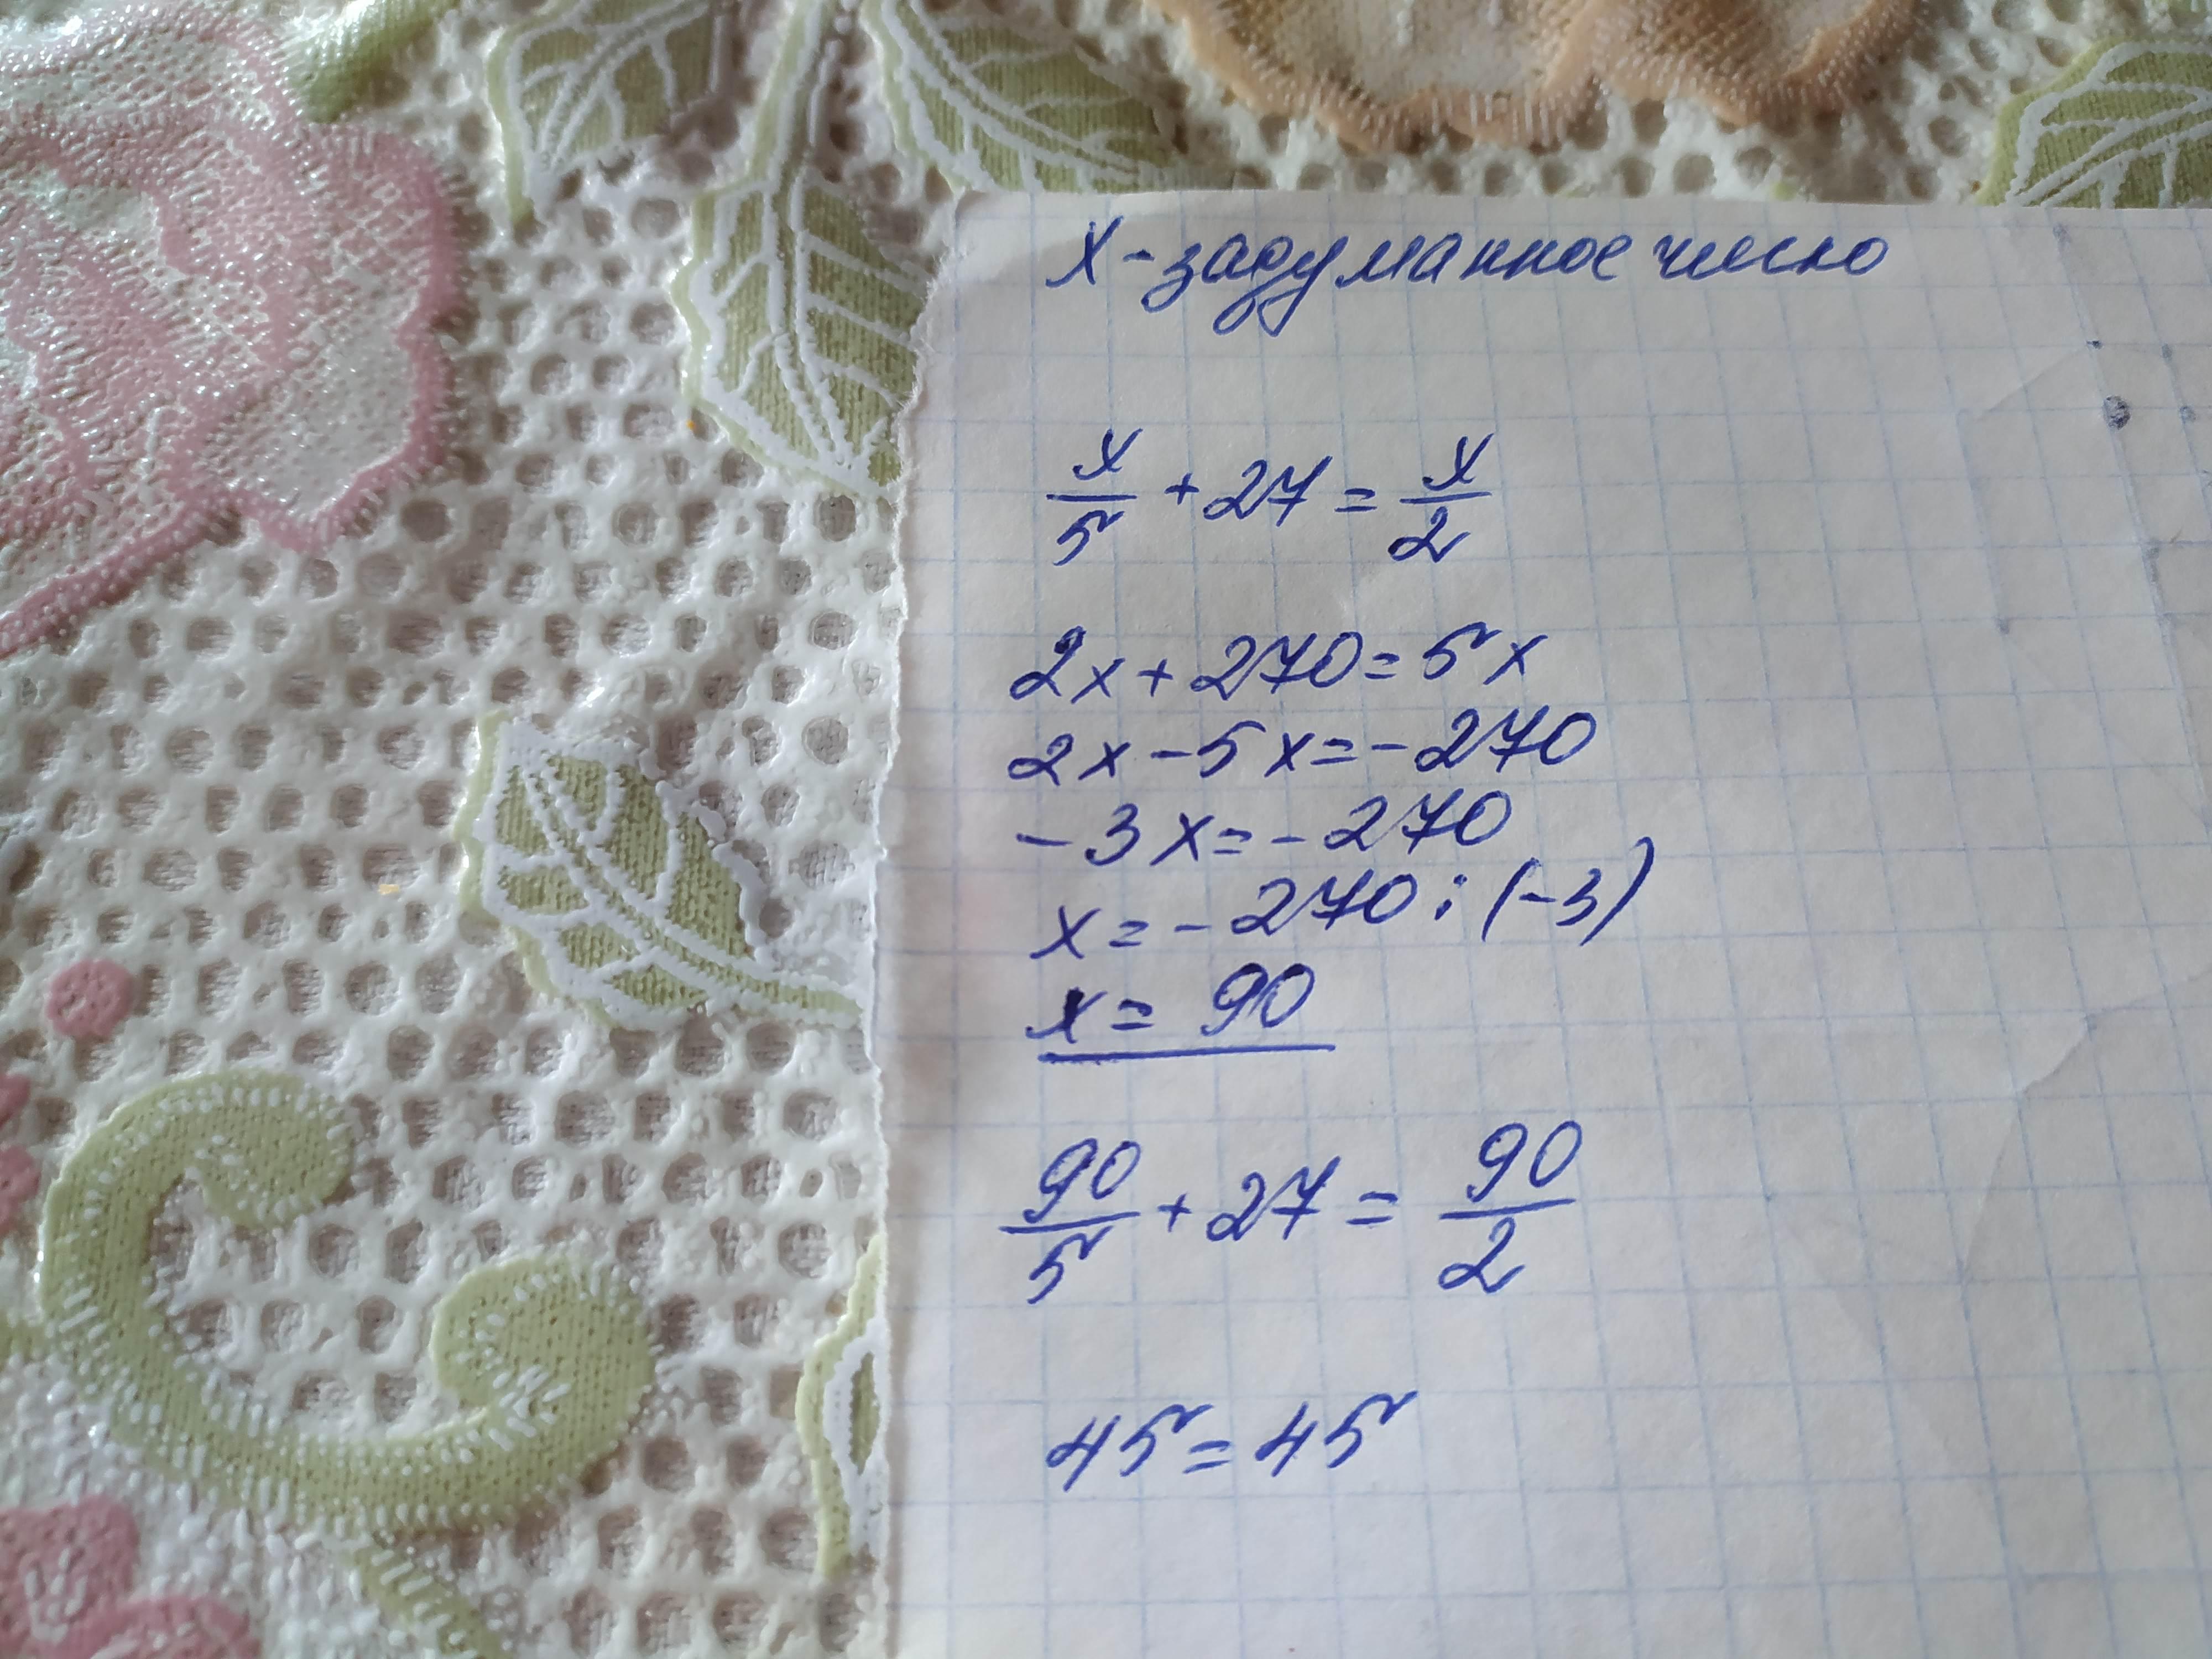 x - задуманное число
x/5 + 27 = x/2
2x + 270 = 5x
2x - 5x = - 270
- 3x = - 270
x = - 270 : (-3)
x = 90
90/5 + 27 = 90/2
45 = 45